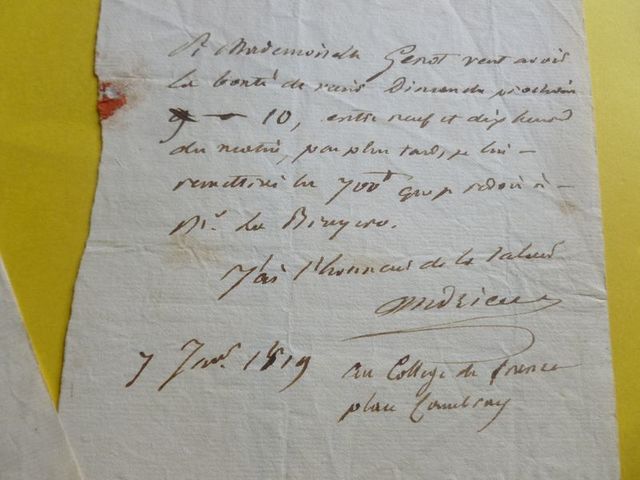 Si Mademoiselle Genot veut avoir
la bonté de venir Dimanche prochain
10, entre neuf et dix heures
du matin, pas plus tard, je lui
remettrai les 700 que je dois à
Mr. de
J'ai l'honneur de la saluer
Andrieux
7 Janv. 1819
au College de france
place Cambray